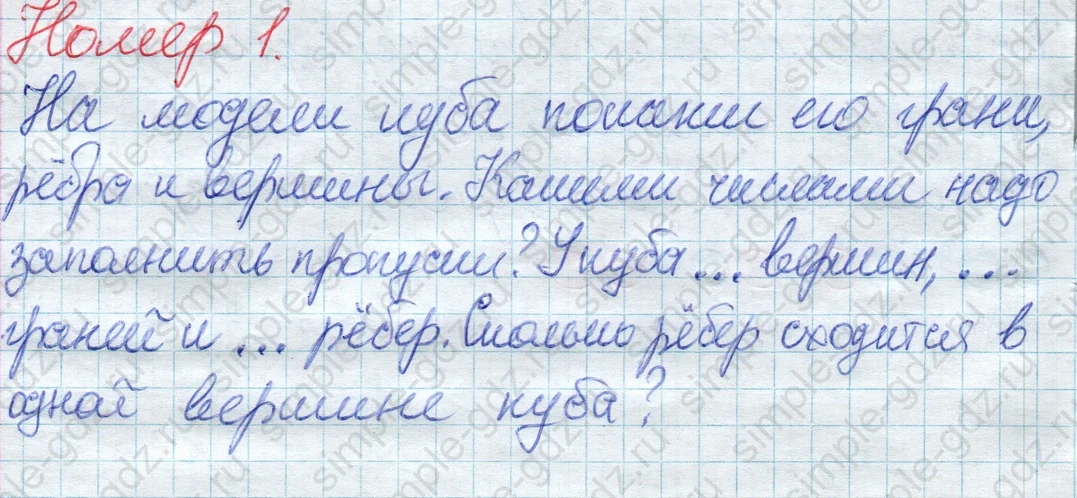 Номер 1.
На модели куба покажи его грани,
рёбра и вершины. Какими числами надо
заполнить пропуски? У куба ... вершин, ...
граней и ... рёбер. Сколько рёбер сходится в
одной вершине куба?
simple-gdz.ru